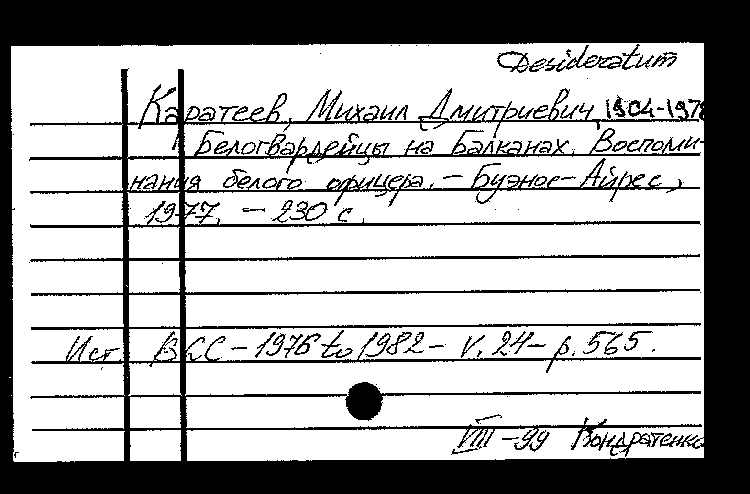 Desideratum
Каратеев, Михаил Дмитриевич, 1904-1978
Белогвардейцы на Балканах. Воспоми-
нания белого офицера. - Буэнос-Айрес,
1977. - 230 с.
Ист. BLC - 1976 to 1982 - v. 24 - p. 565.
VIII - 99 Кондратенко